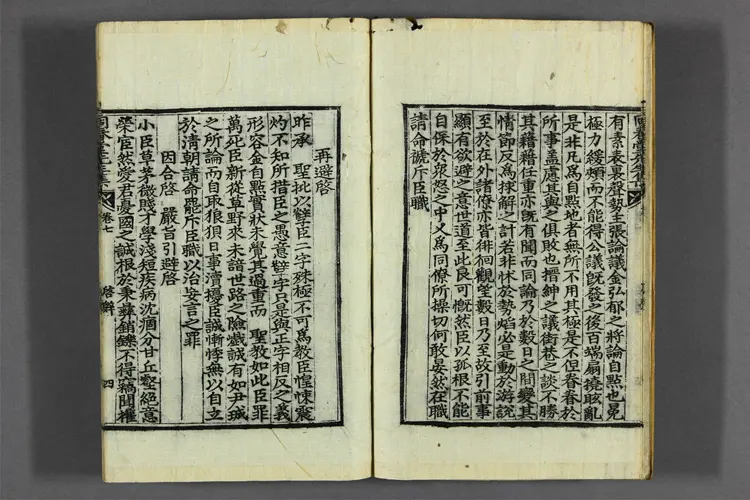 有素表裏聲勢主張論議金弘郁之將論自點也晃
極力緩頰而不能得公議旣發之後百端扇撓眩亂
是非凡爲自點地者無所不用其極是不但眷眷於
所事盖慮其與之俱敗也搢紳之議街巷之談不勝
其藉藉任重亦旣有聞而同論乃於數日之間變其
情節反爲捄解之計若非怵於勢焰必是動於游說
至於在外諸僚亦皆徘徊觀望數日乃至故引前事
顯有欲避之意世道至此良可慨然臣以孤根不能
自保於衆怨之中又爲同僚所操切何敢晏然在職
請命遞斥臣職
再避啓
昨承 聖批以孼臣二字殊極不可爲敎臣惶悚震
灼不知所措臣之愚意孼字只是與正字相反之義
形容金自點實狀未覺其過重而 聖敎如此臣罪
萬死臣新從草野來未諳世路之險巇誠有如尹珹
之所論而自取狼狽日事瀆擾臣誠慚悸無以自立
於淸朝請命罷斥臣職以治妄言之罪
因合啓 嚴旨引避啓
小臣草茅微賤才學淺短疾病沈痼分甘丘壑絶意
榮宦然愛君憂國之誠根於秉彝銷鑠不得竊聞權
卷七 啓辭 四